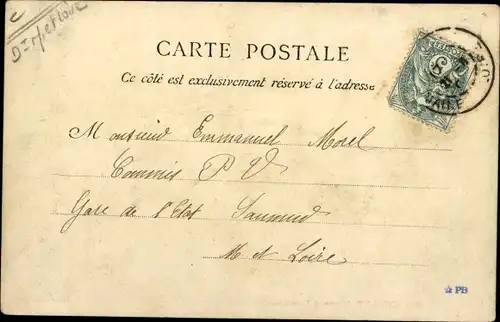 CARTE POSTALE
Ce côté est exclusivement réservé à l'adresse
Monsieur Emmanuel Morel
Commis P V
Gare de l'Etat Saumur
M et Loire
PB